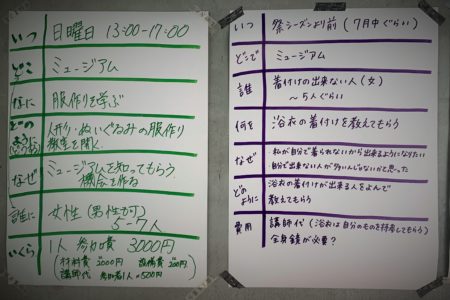 いつ 日曜日 13:00-17:00
どこ ミュージアム
なに 服作りを学ぶ
どの
ように
人形・ぬいぐるみの服作り
教室を開く
なぜ ミュージアムを知ってもらう
機会を作る
誰に 女性(男性も可)
5-7人
いくら 1人 参加費 3000円
(材料費 2000円 設備費 500円
講師代 参加者1人 ×500円)
いつ 祭シーズンより前(7月中ぐらい)
どこで ミュージアム
誰 着付けの出来ない人(女)
〜5人ぐらい
何を 浴衣の着付けを教えてもらう
なぜ ・私が自分で着られないから出来るようになりたい
・自分で出来ない人が多いんじゃないかと思った
どの
ように
浴衣の着付けが出来る人をよんで
教えてもらう
費用 講師代(浴衣は自分のものを持参してもらう)
全身鏡が必要?